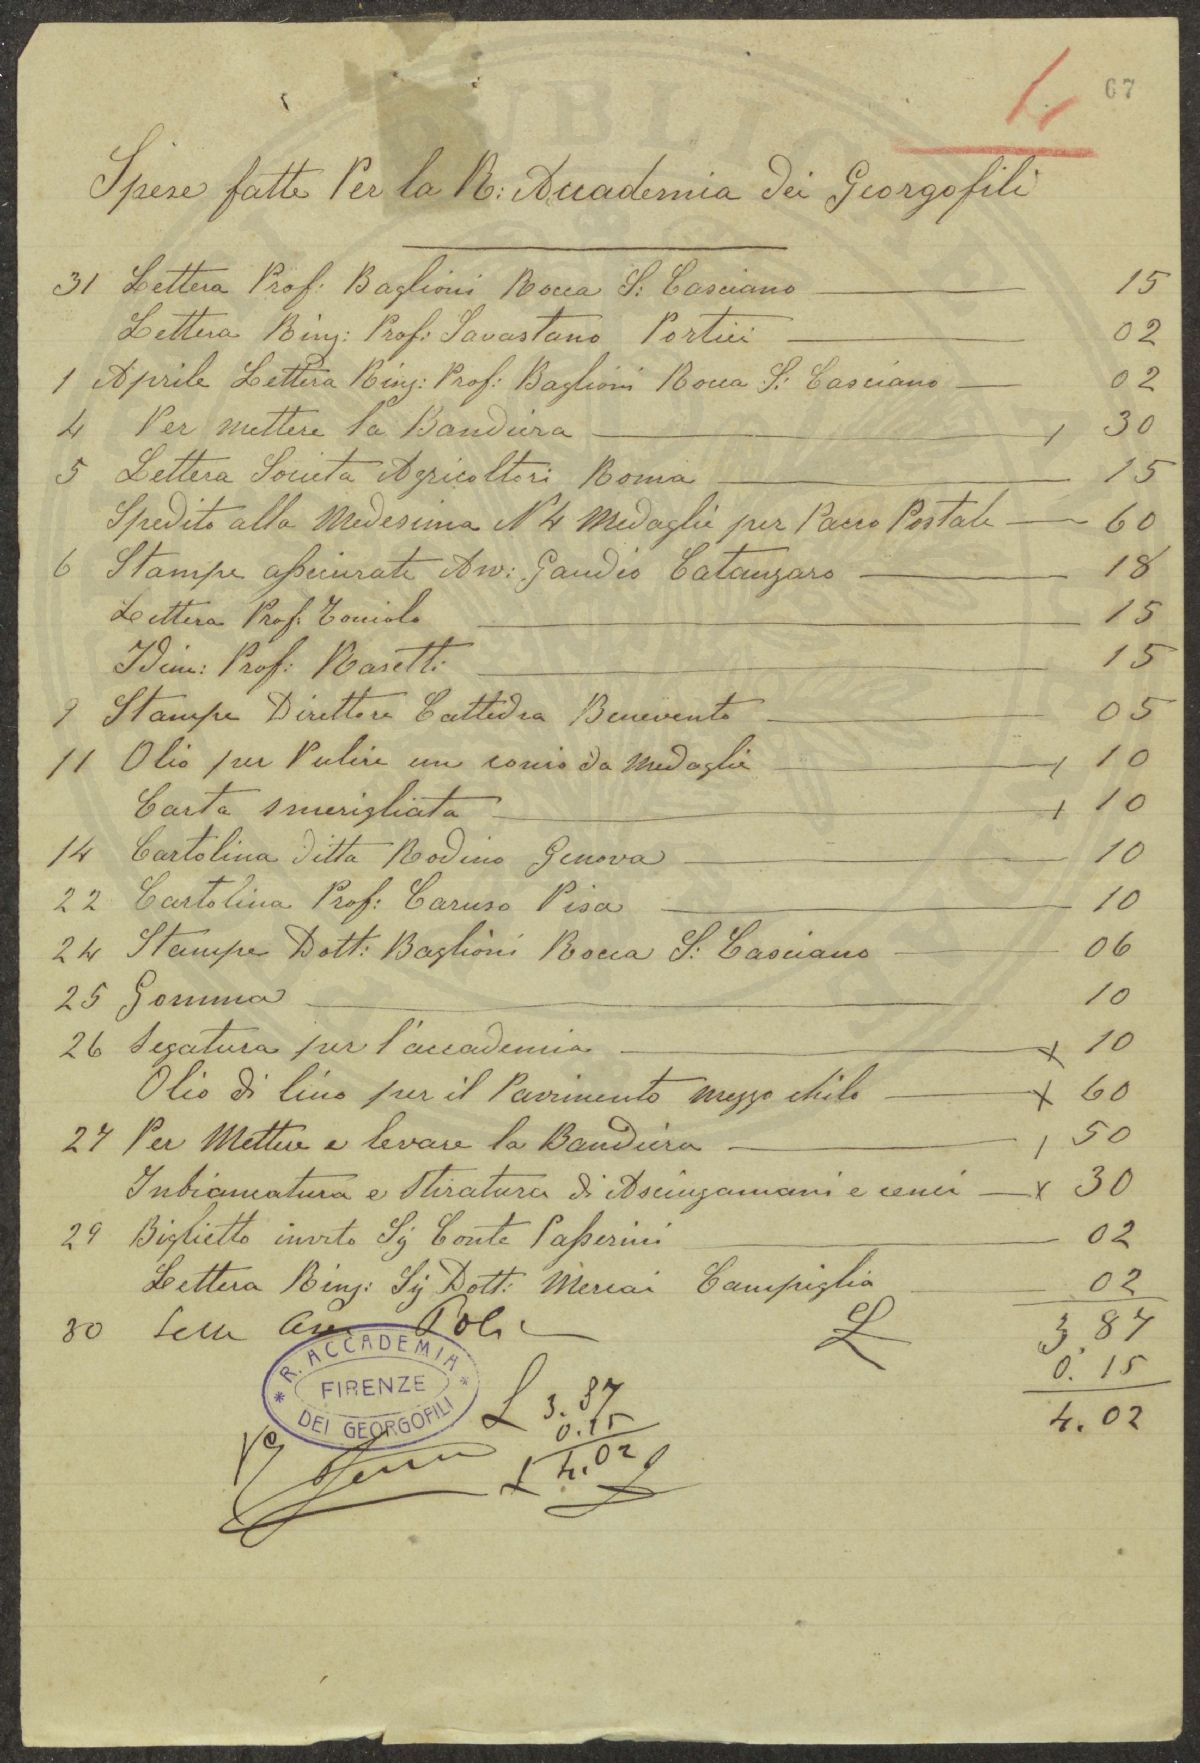 67
1.
Spese fatte Per la R: Accademia dei Georgofili
31 Lettera Prof: Baglioni Rocca S: Casciano 15
Lettera Ring: Prof: Savastano Portici 02
1 Aprile Lettera Ring: Prof: Baglioni Rocca S: Casciano 02
4 Per mettere la Bandiera 30
5 Lettera Societa Agricoltori Roma 15
Spedito alla Medesima N 4 Medaglie per Pacco Postale 60
6 Stampe assicurate Avv: Gaudio Catanzaro 18
Lettera Prof: Toniolo 15
Idem: Prof: Rasetti 15
9 Stampe Direttore Cattedra Benevento 05
11 Olio per Pulire un conio da medaglie 10
Carta smerigliata 10
14 Cartolina ditta Rodino Genova 10
22 Cartolina Prof: Caruso Pisa 10
24 Stampe Dott: Baglioni Rocca S: Casciano 06
25 Gomma 10
26 Segatura per l'accademia x 10
Olio di lino per il Pavimento mezzo chilo x 60
27 Per Mettere e levare la Bandiera 50
Inbiancatura e Stiratura di Asciugamani e cenci x 30
29 Biglietto invito Sig Conte Passerini 02
Lettera Ring: Sig Dott: Campiglia 02
30 L 3,87
0.15
4.02
R. ACCADEMIA
FIRENZE
DEI GEORGOFILI
L 3.87
0.15
L 4.02